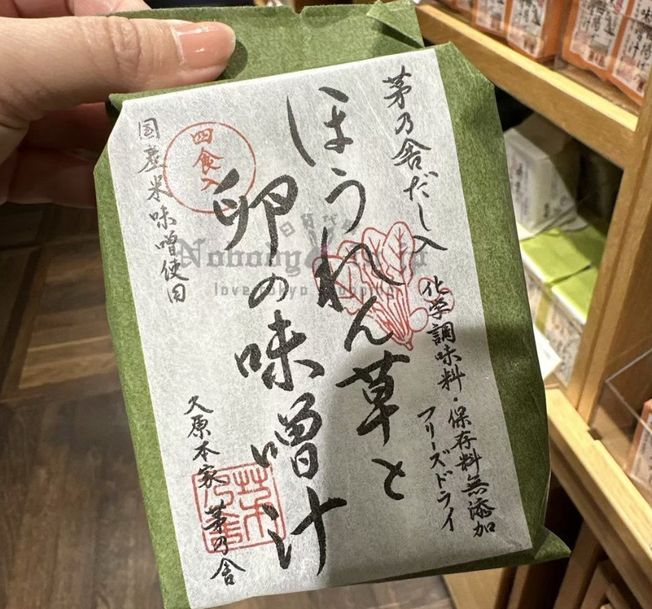 茅乃舎だし入
化学調味料・保存料無添加
フリーズドライ
ほうれん草と
卵の味噌汁
四食入
国産米味噌使用
久原本家 茅乃舎
茅乃舎